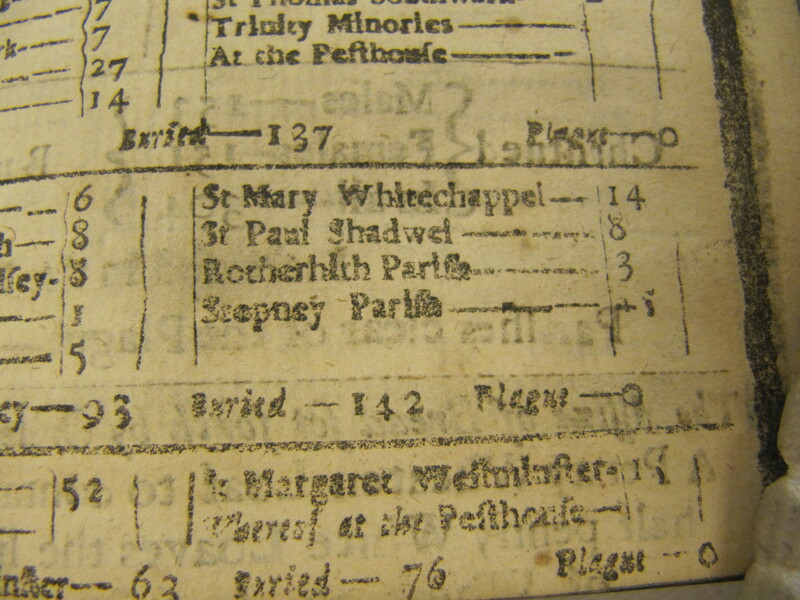 7 St Thomas Southwark
rk— 7 Trinity Minories—
27 At the Pesthouse—
14
Buried—137 Plague—0
6 St Mary Whitechappel— 14
h— 8 St Paul Shadwel — 8
sey- 8 Rotherhith Parish— 3
1 Stepney Parish —
5
ey—93 Buried — 142 Plague —0
52 St Margaret Westminster-
Whereof at the Pesthouse—
inster— 62 Buried — 76 Plague — 0